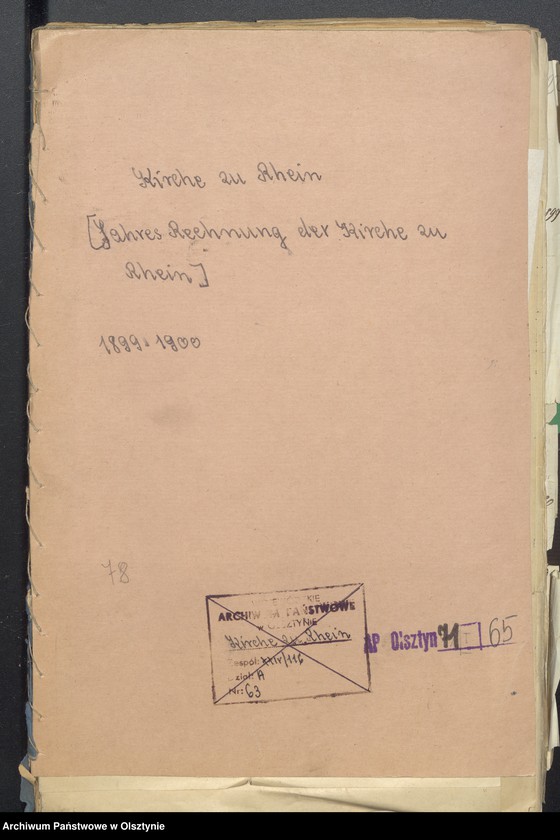 Kirche zu Rhein
[Jahres Rechnung der Kirche zu
Rhein]
1899-1900
78
ARCHIWUM PAŃSTWOWE
w OLSZTYNIE
Kirche zu Rhein
Zespół: XXIV/116
Dział: A
Nr: 63
AP Olsztyn 71 I 65
Archiwum Państwowe w Olsztynie